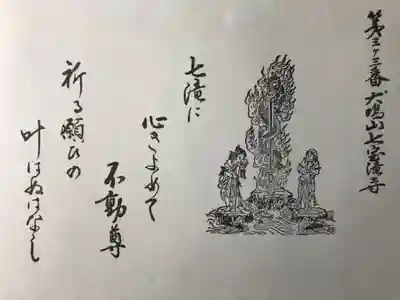 第三十三番犬鳴山七宝滝寺
七滝に
心きよめて
不動尊
祈る願ひの
叶はぬはなし